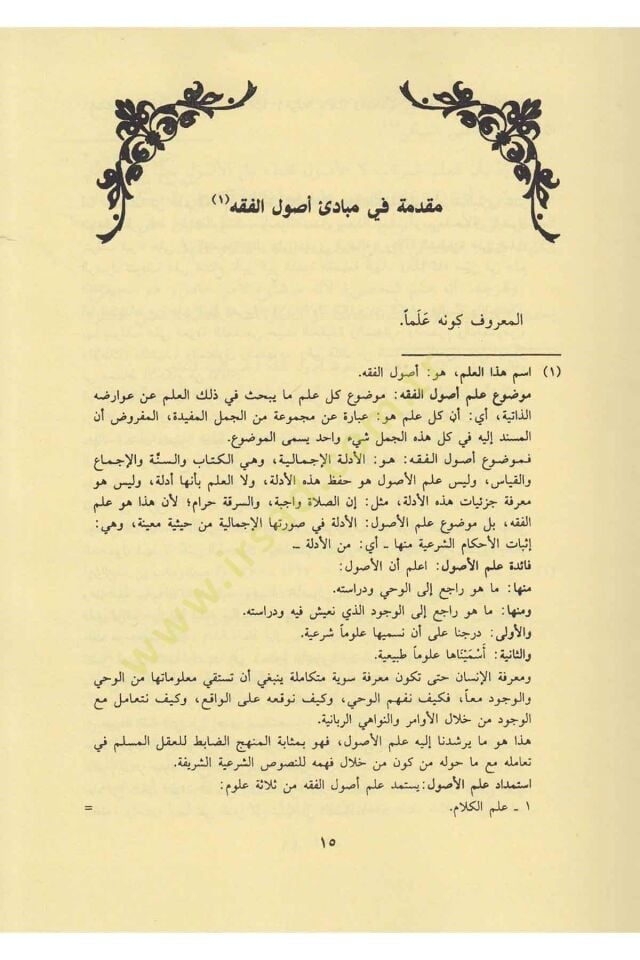 مقدمة في مبادئ أصول الفقه (١)
المعروف كونه عَلَماً.
(١) اسم هذا العلم، هو: أصول الفقه.
موضوع علم أصول الفقه: موضوع كل علم ما يبحث في ذلك العلم عن عوارضه
الذاتية، أي: أن كل علم هو: عبارة عن مجموعة من الجمل المفيدة، المفروض أن
المسند إليه في كل هذه الجمل شيء واحد يسمى الموضوع.
فموضوع أصول الفقه: هو: الأدلة الإجمالية، وهي الكتاب والسنّة والإجماع
والقياس، وليس علم الأصول هو حفظ هذه الأدلة، ولا العلم بأنها أدلة، وليس هو
معرفة جزئيات هذه الأدلة، مثل: إن الصلاة واجبة، والسرقة حرام؛ لأن هذا هو علم
الفقه، بل موضوع علم الأصول: الأدلة في صورتها الإجمالية من حيثية معينة، وهي:
إثبات الأحكام الشرعية منها ـ أي: من الأدلة ـ
فائدة علم الأصول: اعلم أن الأصول:
منها: ما هو راجع إلى الوحي ودراسته.
ومنها: ما هو راجع إلى الوجود الذي نعيش فيه ودراسته.
والأولى: درجنا على أن نسميها علوماً شرعية.
والثانية: أَسْمَيْنَاها علوماً طبيعية.
ومعرفة الإنسان حتى تكون معرفة سوية متكاملة ينبغي أن تستقي معلوماتها من الوحي
والوجود معاً، فكيف نفهم الوحي، وكيف نوقعه على الواقع، وكيف نتعامل مع
الوجود من خلال الأوامر والنواهي الربانية.
هذا هو ما يرشدنا إليه علم الأصول، فهو بمثابة المنهج الضابط للعقل المسلم في
تعامله مع ما حوله من كون من خلال فهمه للنصوص الشرعية الشريفة.
استمداد علم الأصول: يستمد علم أصول الفقه من ثلاثة علوم:
١ ـ علم الكلام. =
١٥